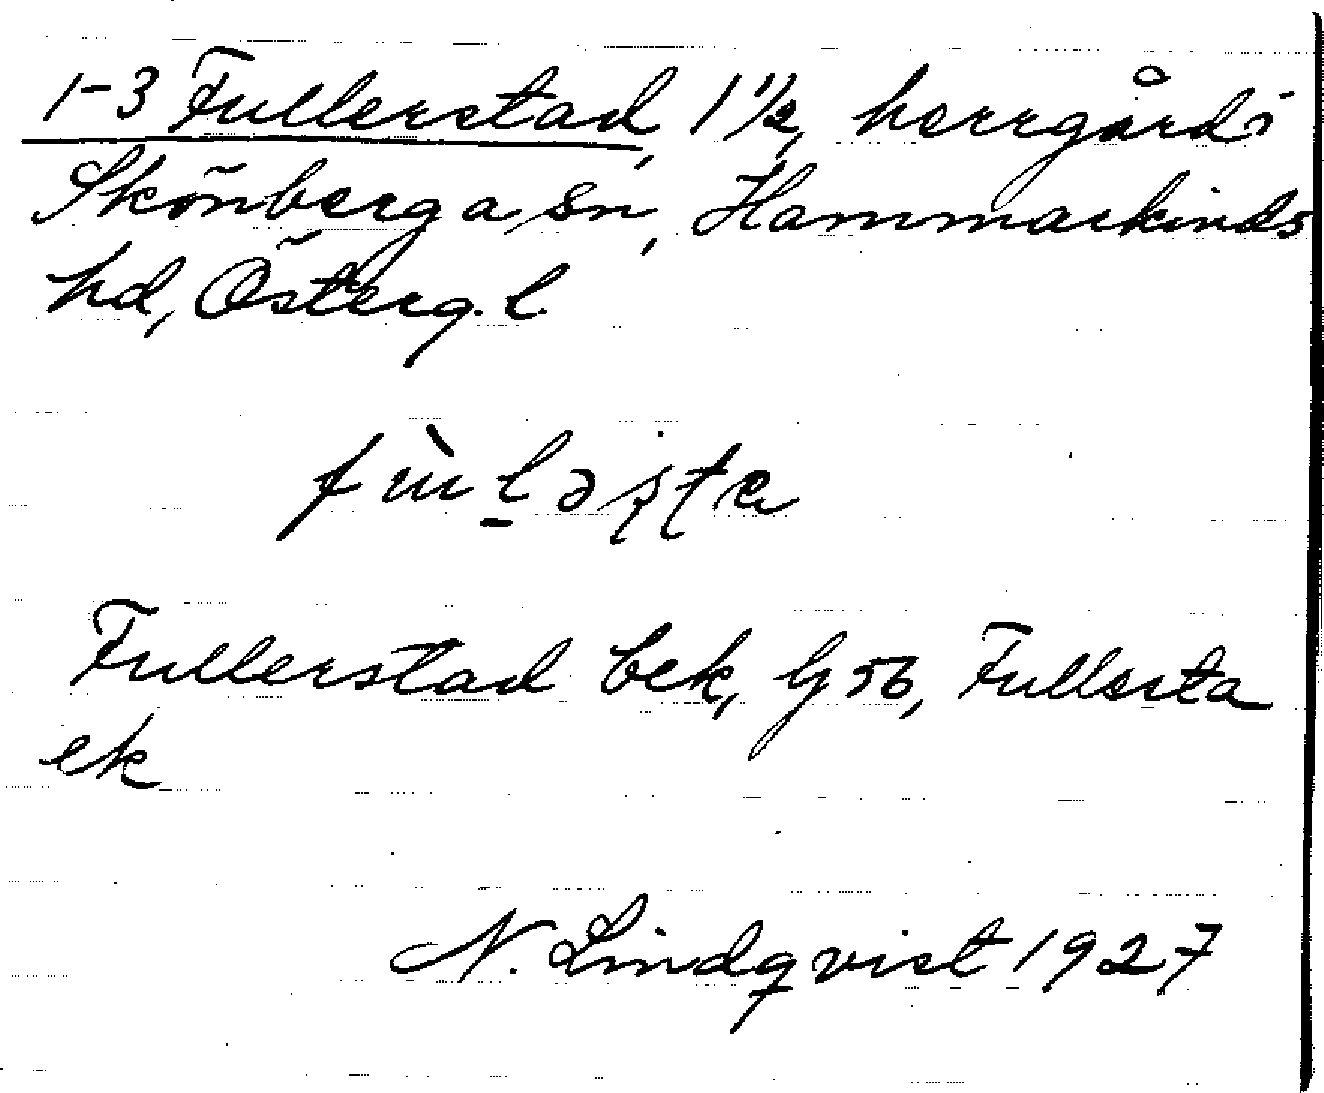 1-3 Fullerstad, 1 1/2, herrgård i
Skönberga sn, Hammarkinds
hd, Österg. l.
Fullerstad bek, Gj 56, Fullersta
ek
N. Lindqvist 1927